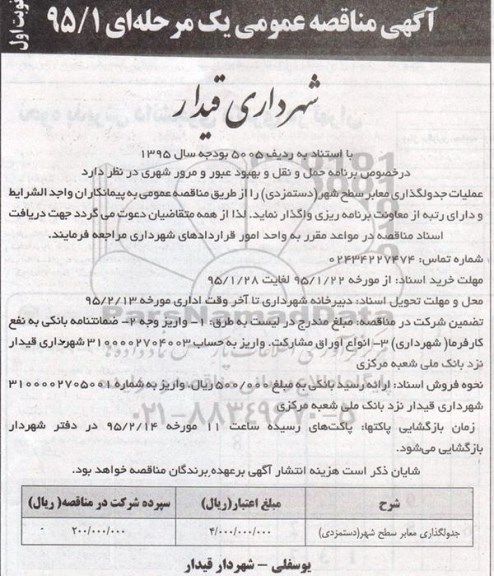 نوبت اول
آگهی مناقصه عمومی یک مرحله‌ای ۹۵/۱
شهرداری قیدار
با استناد به ردیف ۵۰۰۵ بودجه سال ۱۳۹۵
درخصوص برنامه حمل و نقل و بهبود عبور و مرور شهری در نظر دارد
عملیات جدولگذاری معابر سطح شهر(دستمزدی) را از طریق مناقصه عمومی به پیمانکاران واجد الشرایط
و دارای رتبه از معاونت برنامه ریزی واگذار نماید. لذا از همه متقاضیان دعوت می گردد جهت دریافت
اسناد مناقصه در مواعد مقرر به واحد امور قراردادهای شهرداری مراجعه فرمایند.
شماره تماس: ۰۲۴۳۴۲۲۷۴۷۴
مهلت خرید اسناد: از مورخه ۹۵/۱/۲۲ لغایت ۹۵/۱/۲۸
محل و مهلت تحویل اسناد: دبیرخانه شهرداری تا آخر وقت اداری مورخه ۹۵/۲/۱۳
تضمین شرکت در مناقصه: مبلغ مندرج در لیست به طرق: ۱- واریز وجه ۲- ضمانتنامه بانکی به نفع
کارفرما( شهرداری) ۳- انواع اوراق مشارکت. واریز به حساب ۳۱۰۰۰۰۲۷۰۴۰۰۳ شهرداری قیدار
نزد بانک ملی شعبه مرکزی
نحوه فروش اسناد: ارائه رسید بانکی به مبلغ ۵۰۰/۰۰۰ ریال واریز به شماره ۳۱۰۰۰۰۲۷۰۵۰۰۱
شهرداری قیدار نزد بانک ملی شعبه مرکزی
زمان بازگشایی پاکتها: پاکت‌های رسیده ساعت ۱۱ مورخه ۹۵/۲/۱۴ در دفتر شهردار
بازگشایی می‌شود.
شایان ذکر است هزینه انتشار آگهی برعهده برندگان مناقصه خواهد بود.
شرح مبلغ اعتبار(ریال) سپرده شرکت در مناقصه( ریال)
جدولگذاری معابر سطح شهر(دستمزدی) ۴/۰۰۰/۰۰۰/۰۰۰ ۲۰۰/۰۰۰/۰۰۰
یوسفلی - شهردار قیدار
ParsNamadData
۰۲۱-۸۸۳۴۹۶۷۰-۵